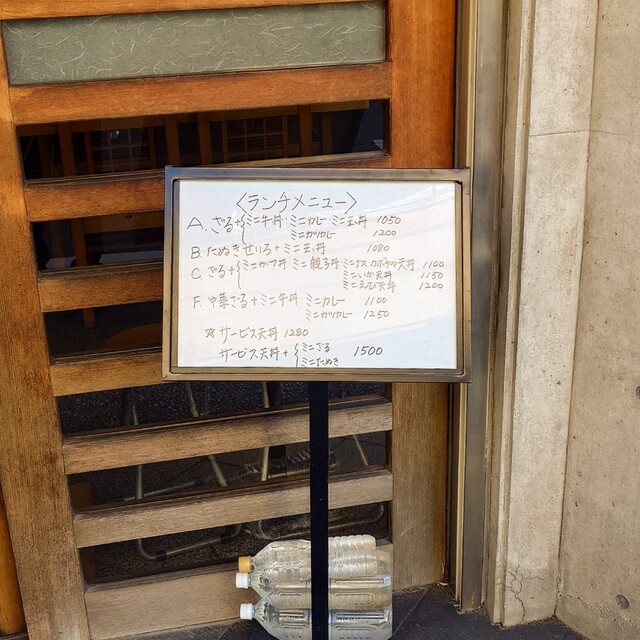 〈ランチメニュー〉
A. ざる+ ミニ牛丼 ミニカレー ミニ玉丼 1050
ミニカツカレー 1200
B. たぬきせいろ+ ミニ玉丼 1080
C. ざる+ ミニかつ丼 ミニ親子丼 ミニナス・カボチャ天丼 1100
ミニいか天丼 1150
ミニえび天丼 1200
F. 中華ざる+ミニ牛丼 ミニカレー 1100
ミニカツカレー 1250
☆サービス天丼 1280
サービス天丼+ ミニざる 1500
ミニたぬき